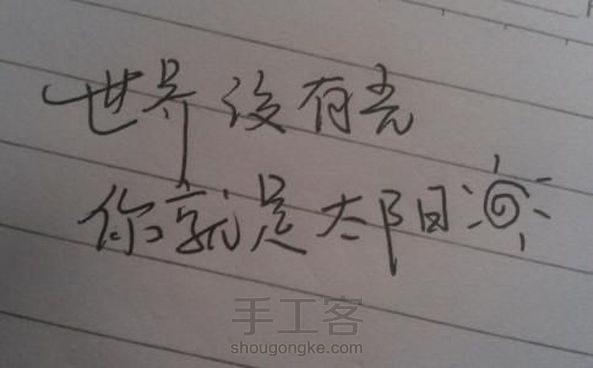 世界没有光
你就是太阳
手工客
shougongke.com